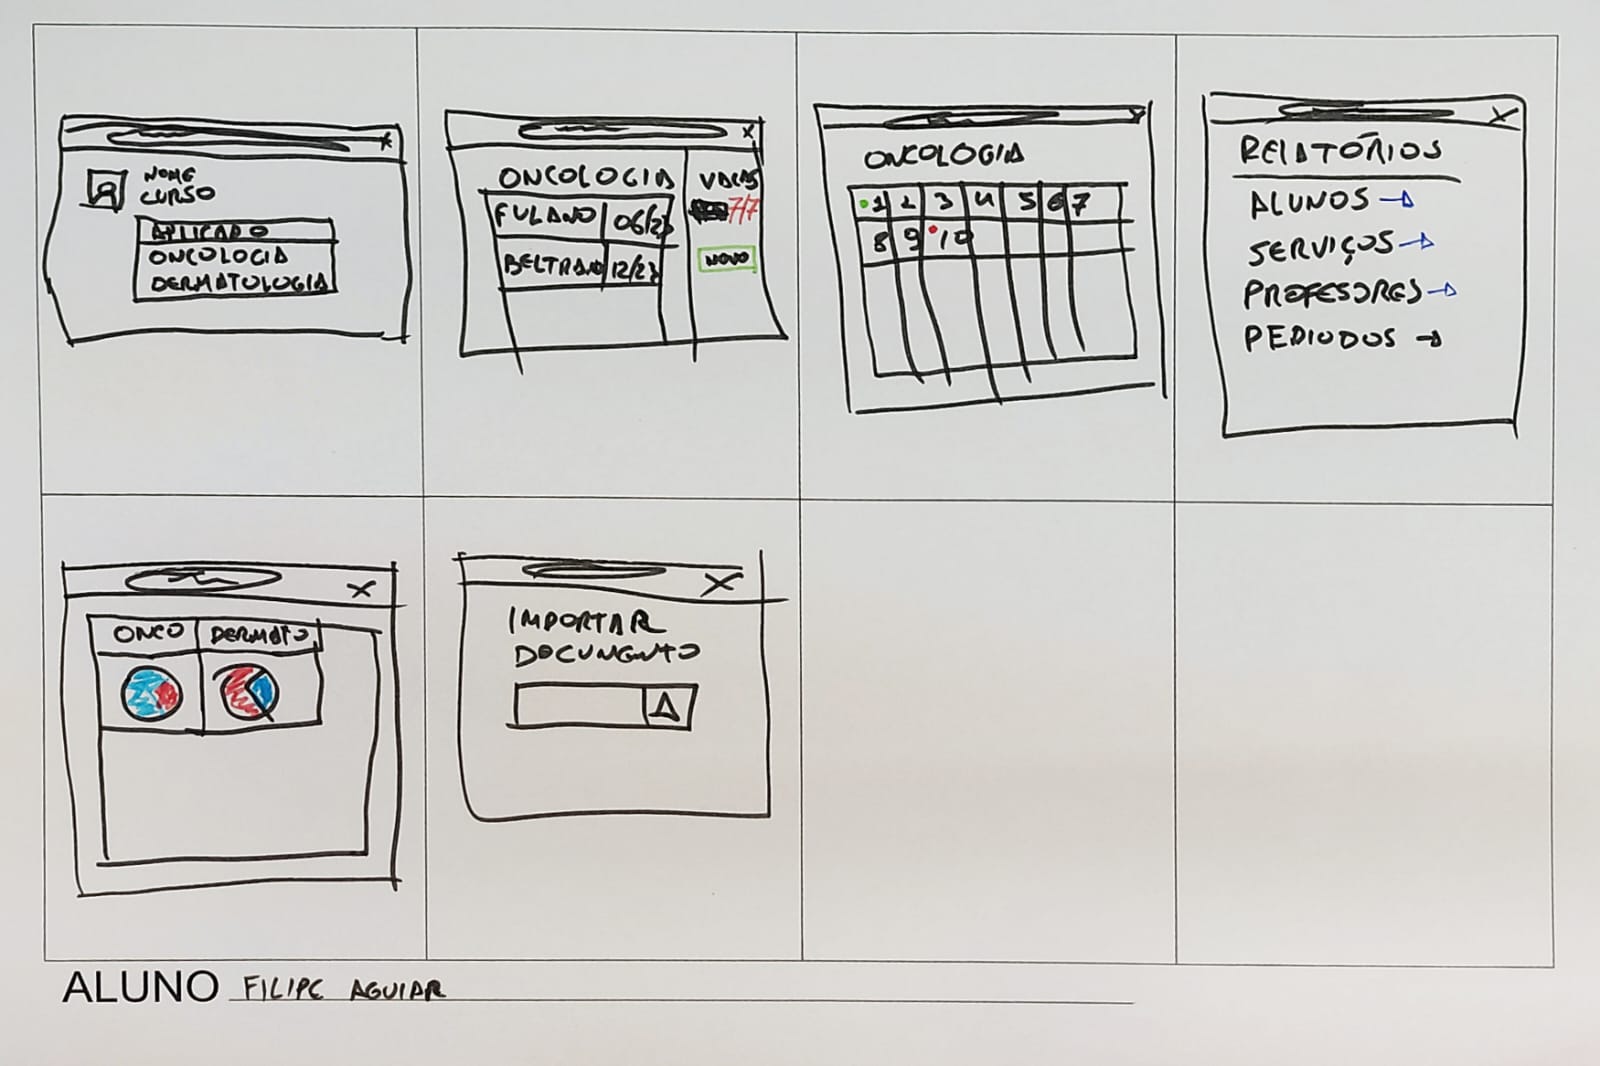 NOME
CURSO
APLICADO
ONCOLOGIA
DERMATOLOGIA
ONCOLOGIA
FULANO 06/23
BELTRANO 12/23
VAGAS
7/7
NOVO
ONCOLOGIA
1 2 3 4 5 6 7
8 9 10
RELATÓRIOS
ALUNOS
SERVIÇOS
PROFESORES
PEDIODOS
ONCO DERMATO
IMPORTAR
DOCUMENTO
ALUNO FILIPE AGUIAR